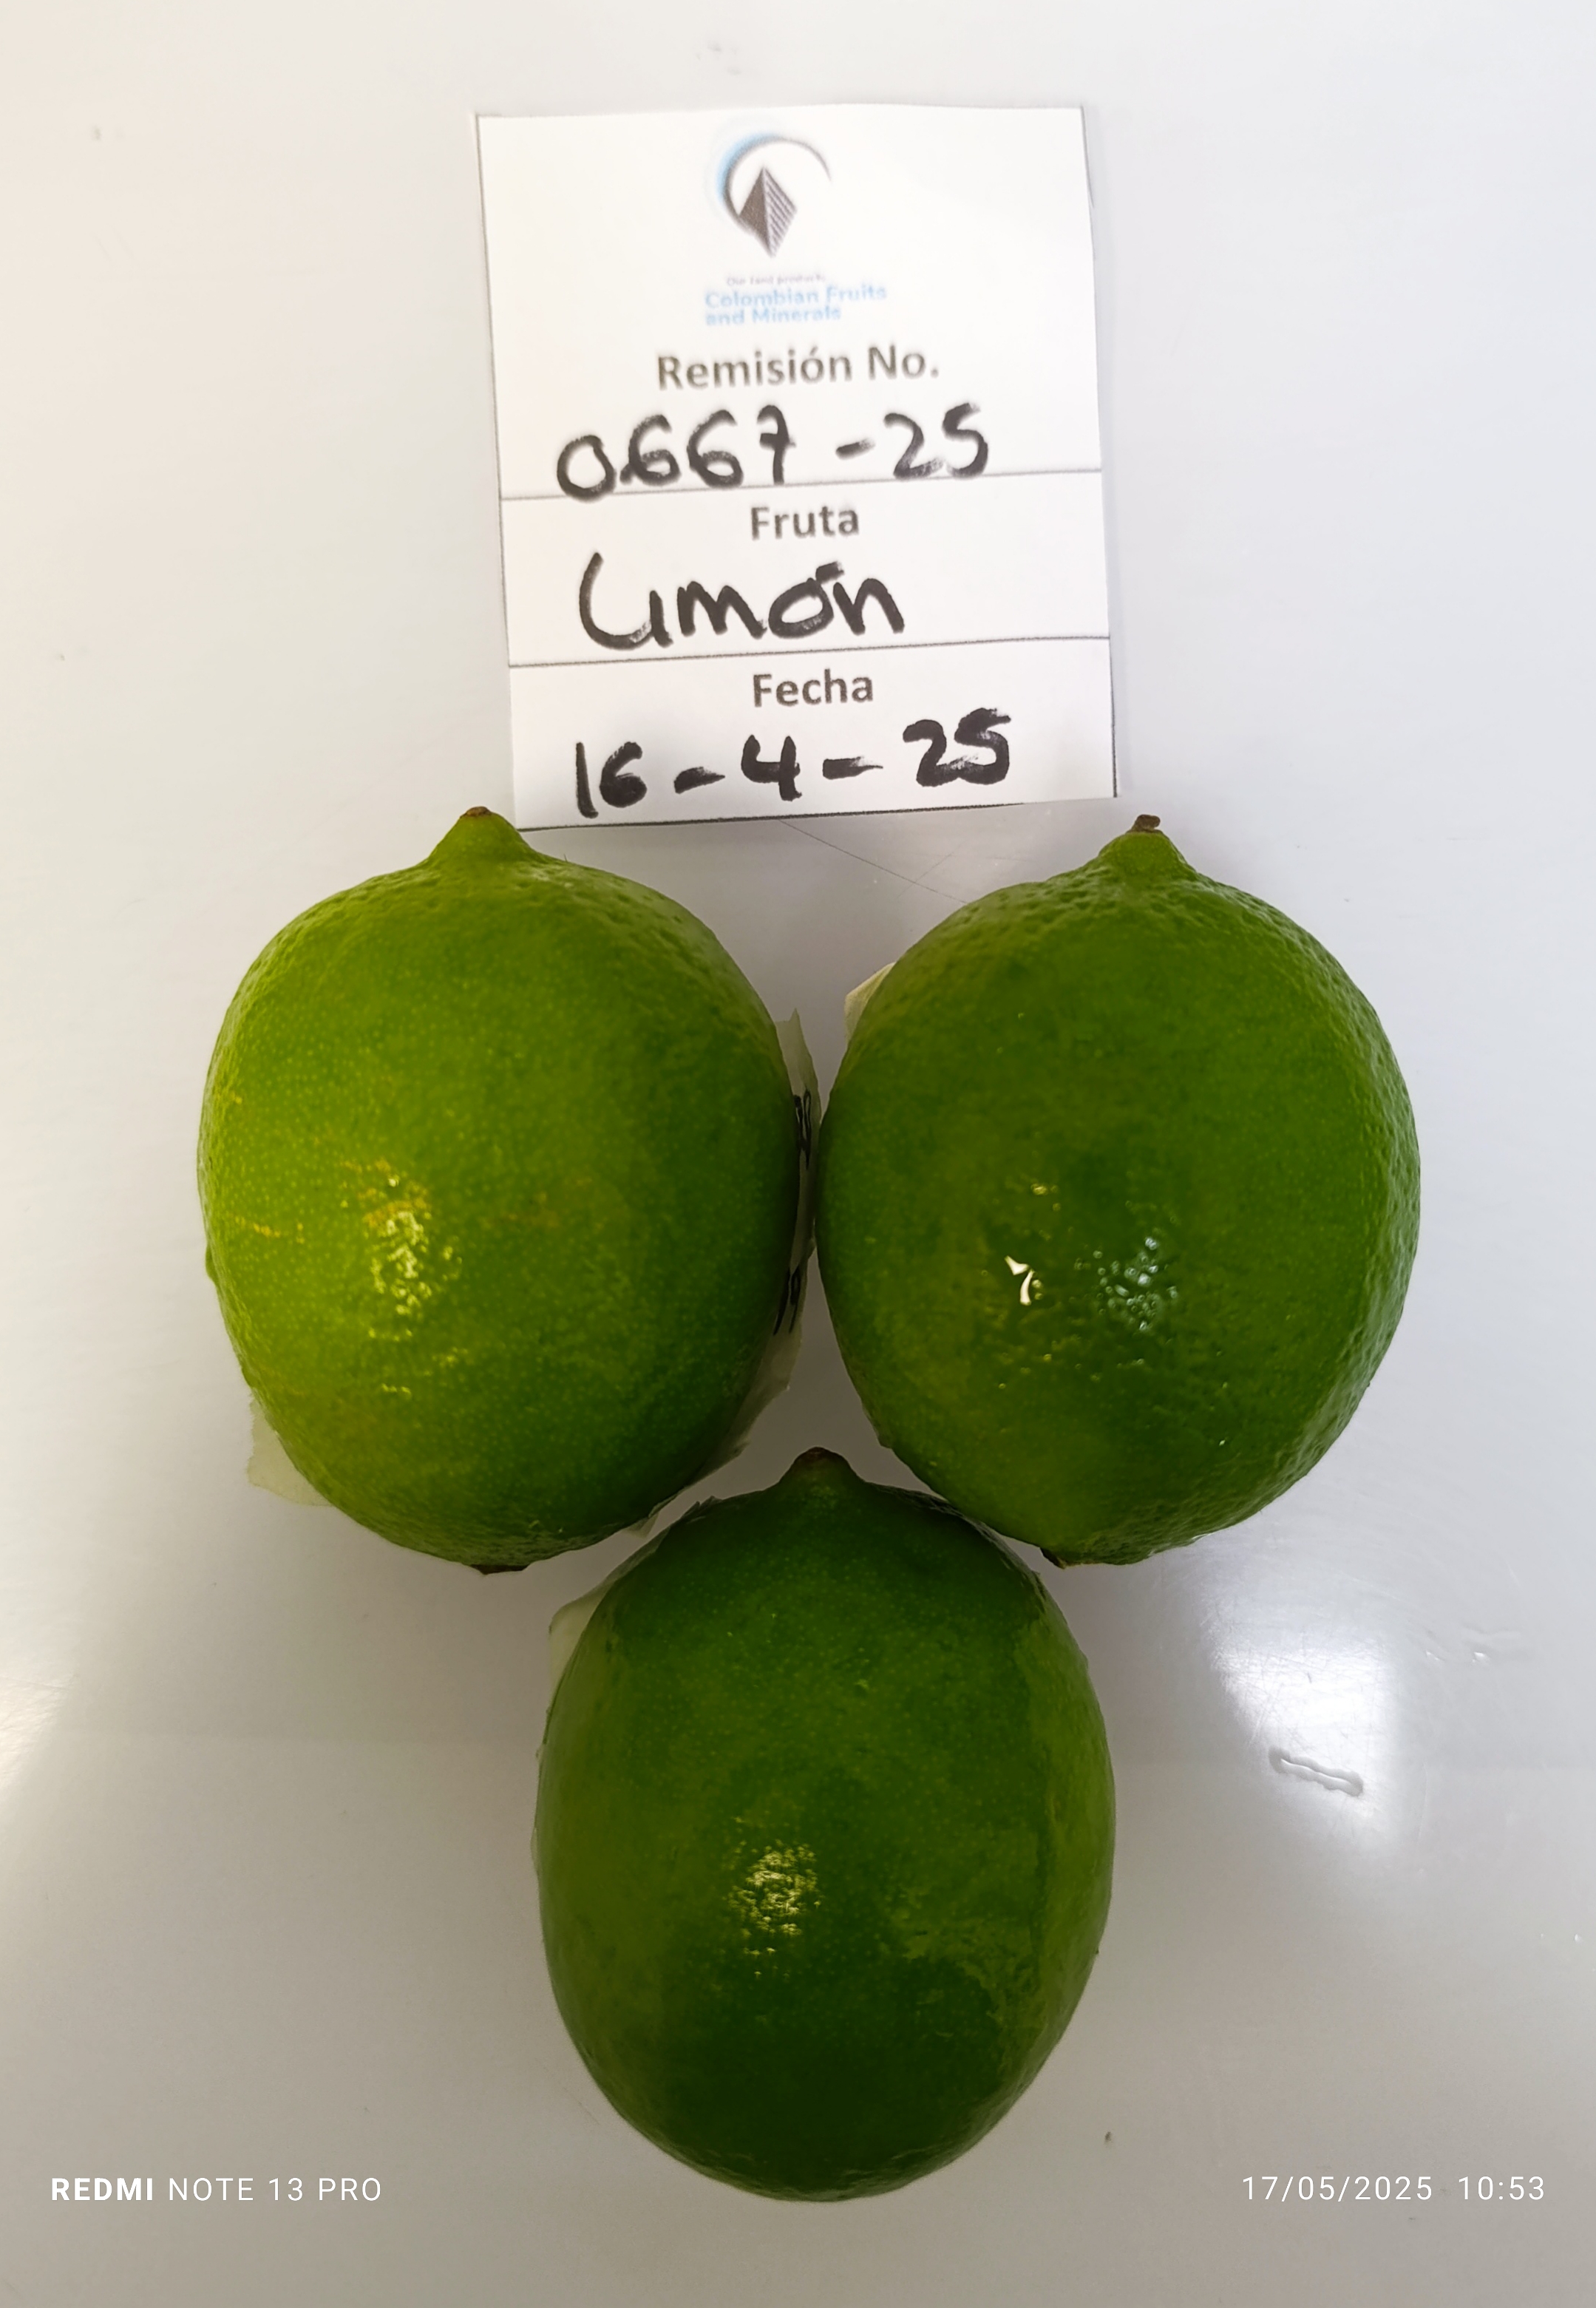 Our land products
Colombian Fruits
and Minerals
Remisión No.
0667-25
Fruta
Limón
Fecha
16-4-25
REDMI NOTE 13 PRO
17/05/2025 10:53